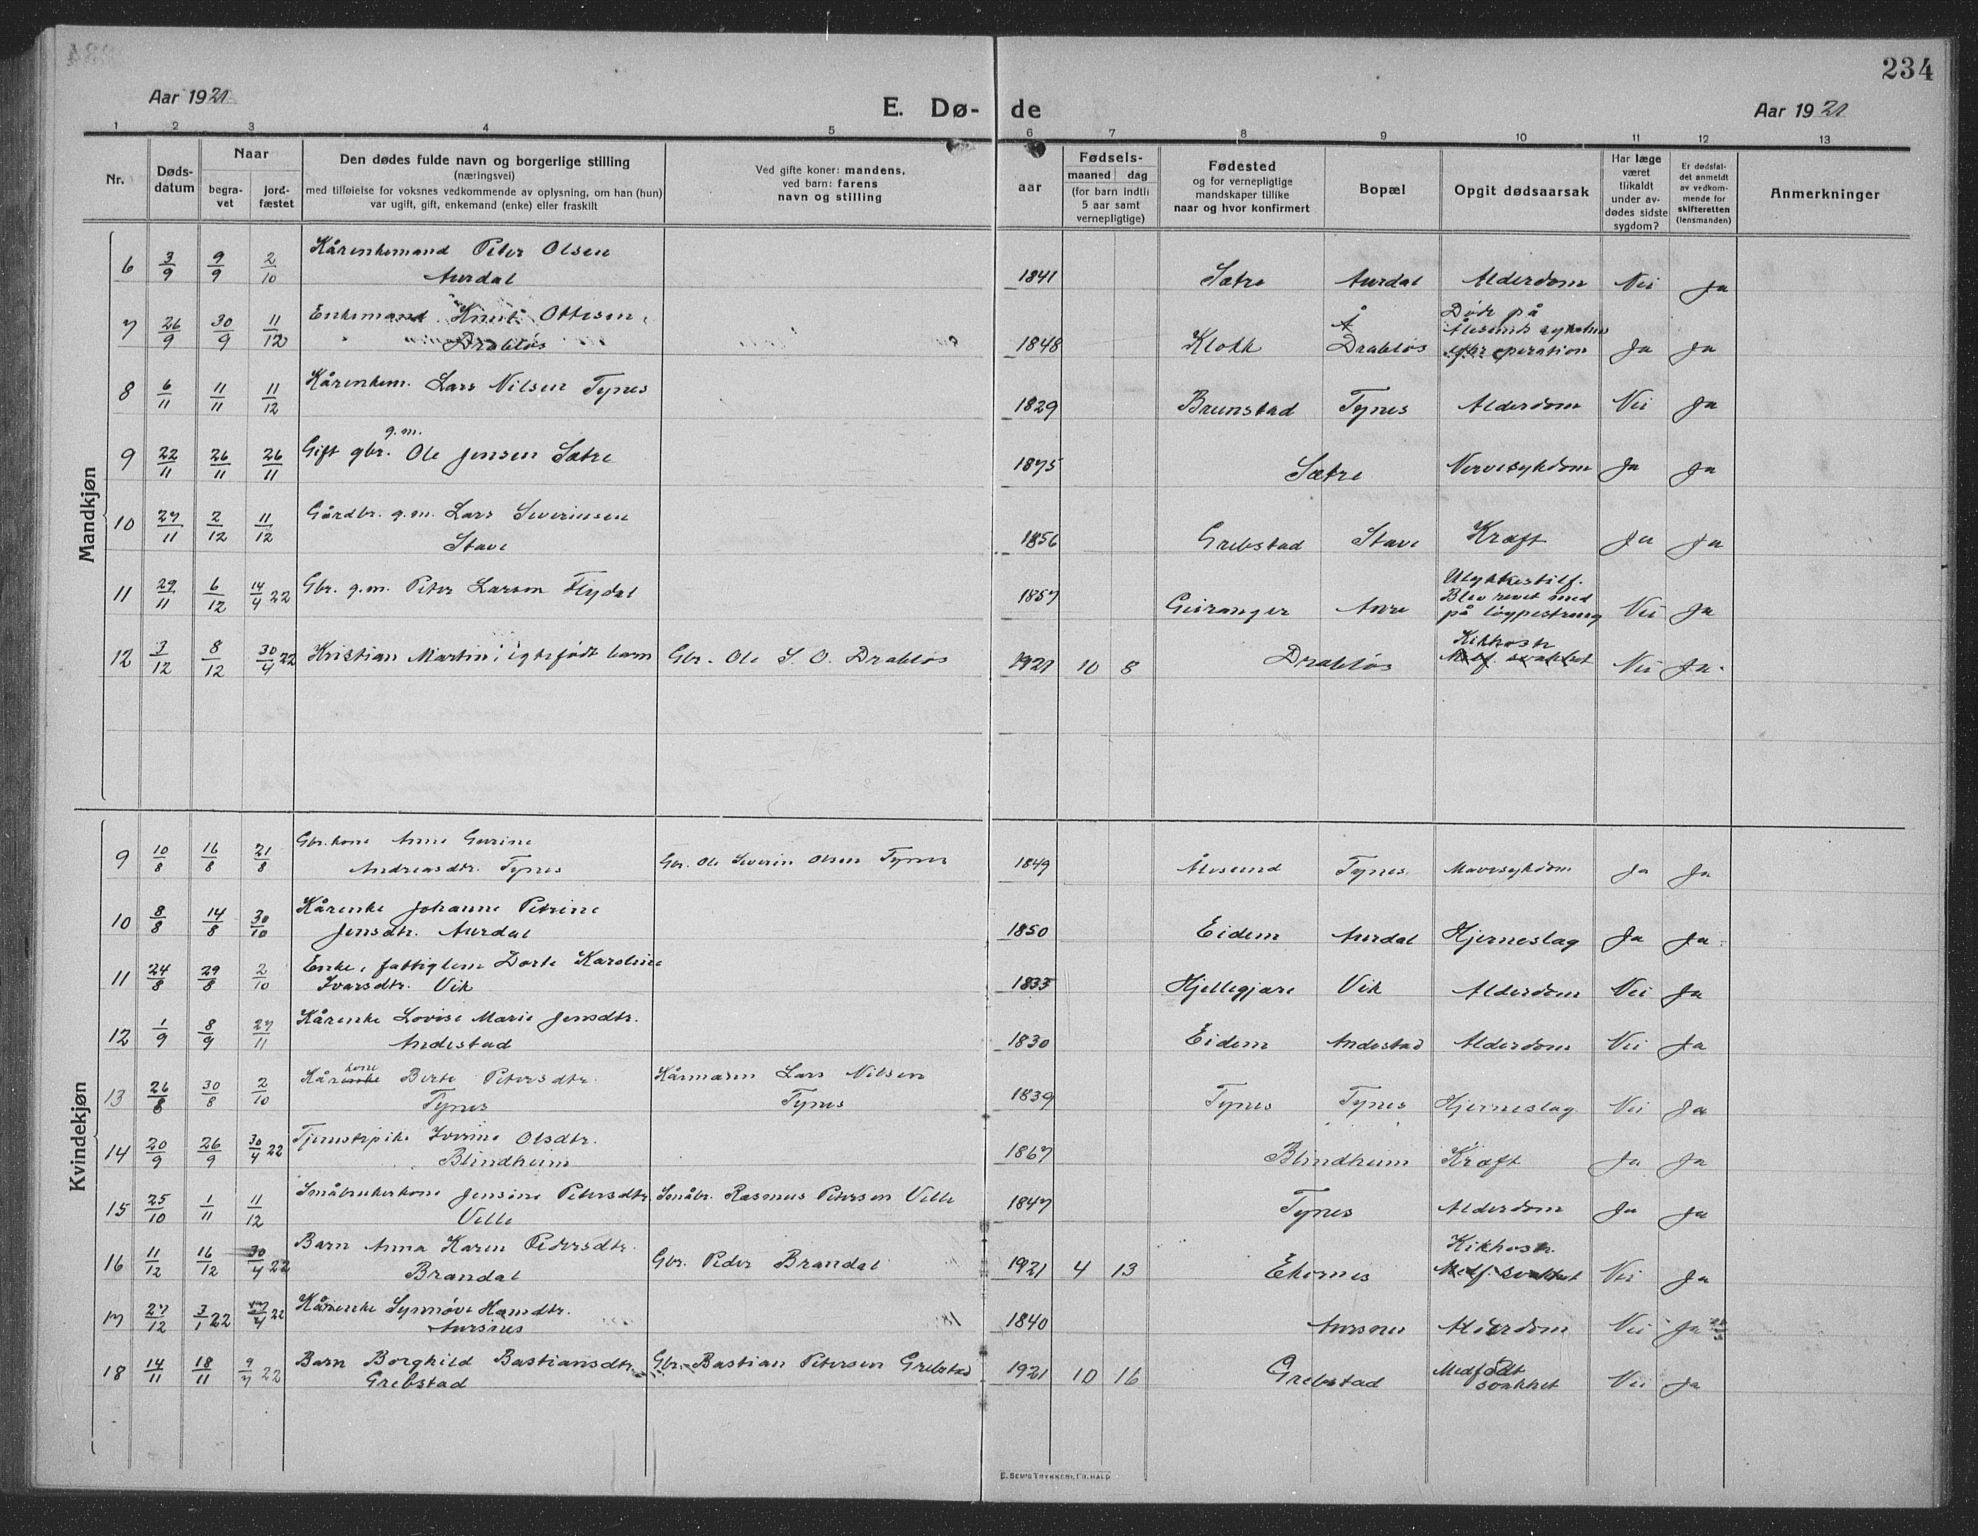 234
Aar 1921
E. Dø- de
Aar 1921
1 2 3 4 5 6 7 8 9 10 11 12 13
Nr.
Døds-
datum
Naar
begra-
vet
jord-
fæstet
Den dødes fulde navn og borgerlige stilling
(næringsvei)
med tilføielse for voksnes vedkommende av oplysning, om han (hun)
var ugift, gift, enkemand (enke) eller fraskilt
Ved gifte koner: mandens,
ved barn: farens
navn og stilling
Fødsels-
aar
maaned dag
(for barn indtil
5 aar samt
vernepligtige)
Fødested
og for vernepligtige
mandskaper tillike
naar og hvor konfirmert
Bopæl
Opgit dødsaarsak
Har læge
været
tilkaldt
under av-
dødes sidste
sygdom?
Er dødsfal-
det anmeldt
av vedkom-
mende for
skifteretten
(lensmanden)
Anmerkninger
Mandkjøn
6 3/9 9/9 2/10 Kårenkemand Peter Olsen
Aurdal 1841 Sætre Aurdal Alderdom Nei Ja
7 26/9 30/9 11/12 Enkemand Knut Ottesen
Drabløs 1848 Klokk Å Drabløs Døde på
Ålesunds sykehus
efter operation Ja Ja
8 6/11 11/11 11/12 Kårenkem. Lars Nilsen Tynes 1829 Brunstad Tynes Alderdom Nei Ja
9 22/11 26/11 26/11 Gift gbr. g.m. Ole Jensen Sætre 1875 Sætre Nervesykdom Ja Ja
10 27/11 2/12 11/12 Gårdbr. g.m. Lars Severinsen
Stave 1856 Grebstad Stave Kræft Ja Ja
11 29/11 6/12 14/4 22 Gbr. g.m. Peter Larsen Flydal 1857 Geiranger Aure Ulykkestilf.
Blev revet med
på løypestreng Nei Ja
12 3/12 8/12 30/4 22 Kristian Martin, egtefødt barn Gbr. Ole S. O. Drabløs 1921 10 8 Drabløs Kikhoste
Medf. svakhet Nei Ja.
Kvindekjøn
9 10/8 16/8 21/8 Gbr.kone Anne Gurine
Andreasdtr. Tynes Gbr. Ole Severin Olsen Tynes 1849 Ålesund Tynes Mavesykdom Ja Ja
10 8/8 14/8 30/10 Kårenke Johanne Petrine
Jensdtr. Aurdal 1850 Eidem Aurdal Hjerneslag Ja Ja
11 24/8 29/8 2/10 Enke, fattiglem Dorte Karoline
Ivarsdtr. Vik 1835 Hjellegjære Vik Alderdom Nei Ja
12 1/9 8/9 27/11 Kårenke Lovise Marie Jensdtr.
Andestad 1830 Eidem Andestad Alderdom Nei Ja
13 26/8 30/8 2/10 Kårenke kone Berte Petersdtr.
Tynes Kårmann Lars Nilsen
Tynes 1839 Tynes Tynes Hjerneslag Nei Ja
14 20/9 26/9 30/4 22 Tjenestepike Iverine Olsdtr.
Blindheim 1867 Blindheim Kræft Ja Ja
15 25/10 1/11 11/12 Småbrukerkone Jensine Petersdtr.
Velle Småbr. Rasmus Petersen Velle 1847 Tynes Alderdom Ja Ja
16 11/12 16/12 30/4 22 Barn Anna Karen Pedersdtr.
Brandal Gbr. Peder Brandal 1921 4 13 Ekornes Kikhoste
Medf. svakhet Nei Ja
17 27/12 3/1 22 17/4 22 Kårenke Synnøve Hansdtr.
Aursnes 1840 Aursnes Alderdom Nei Ja
18 14/11 18/11 9/7 22 Barn Borghild Bastiansdtr.
Grebstad Gbr. Bastian Petersen Grebstad 1921 10 16 Grebstad Medfødt
svakhet Nei Ja
E. SEM'S TRYKKERI, FR.HALD